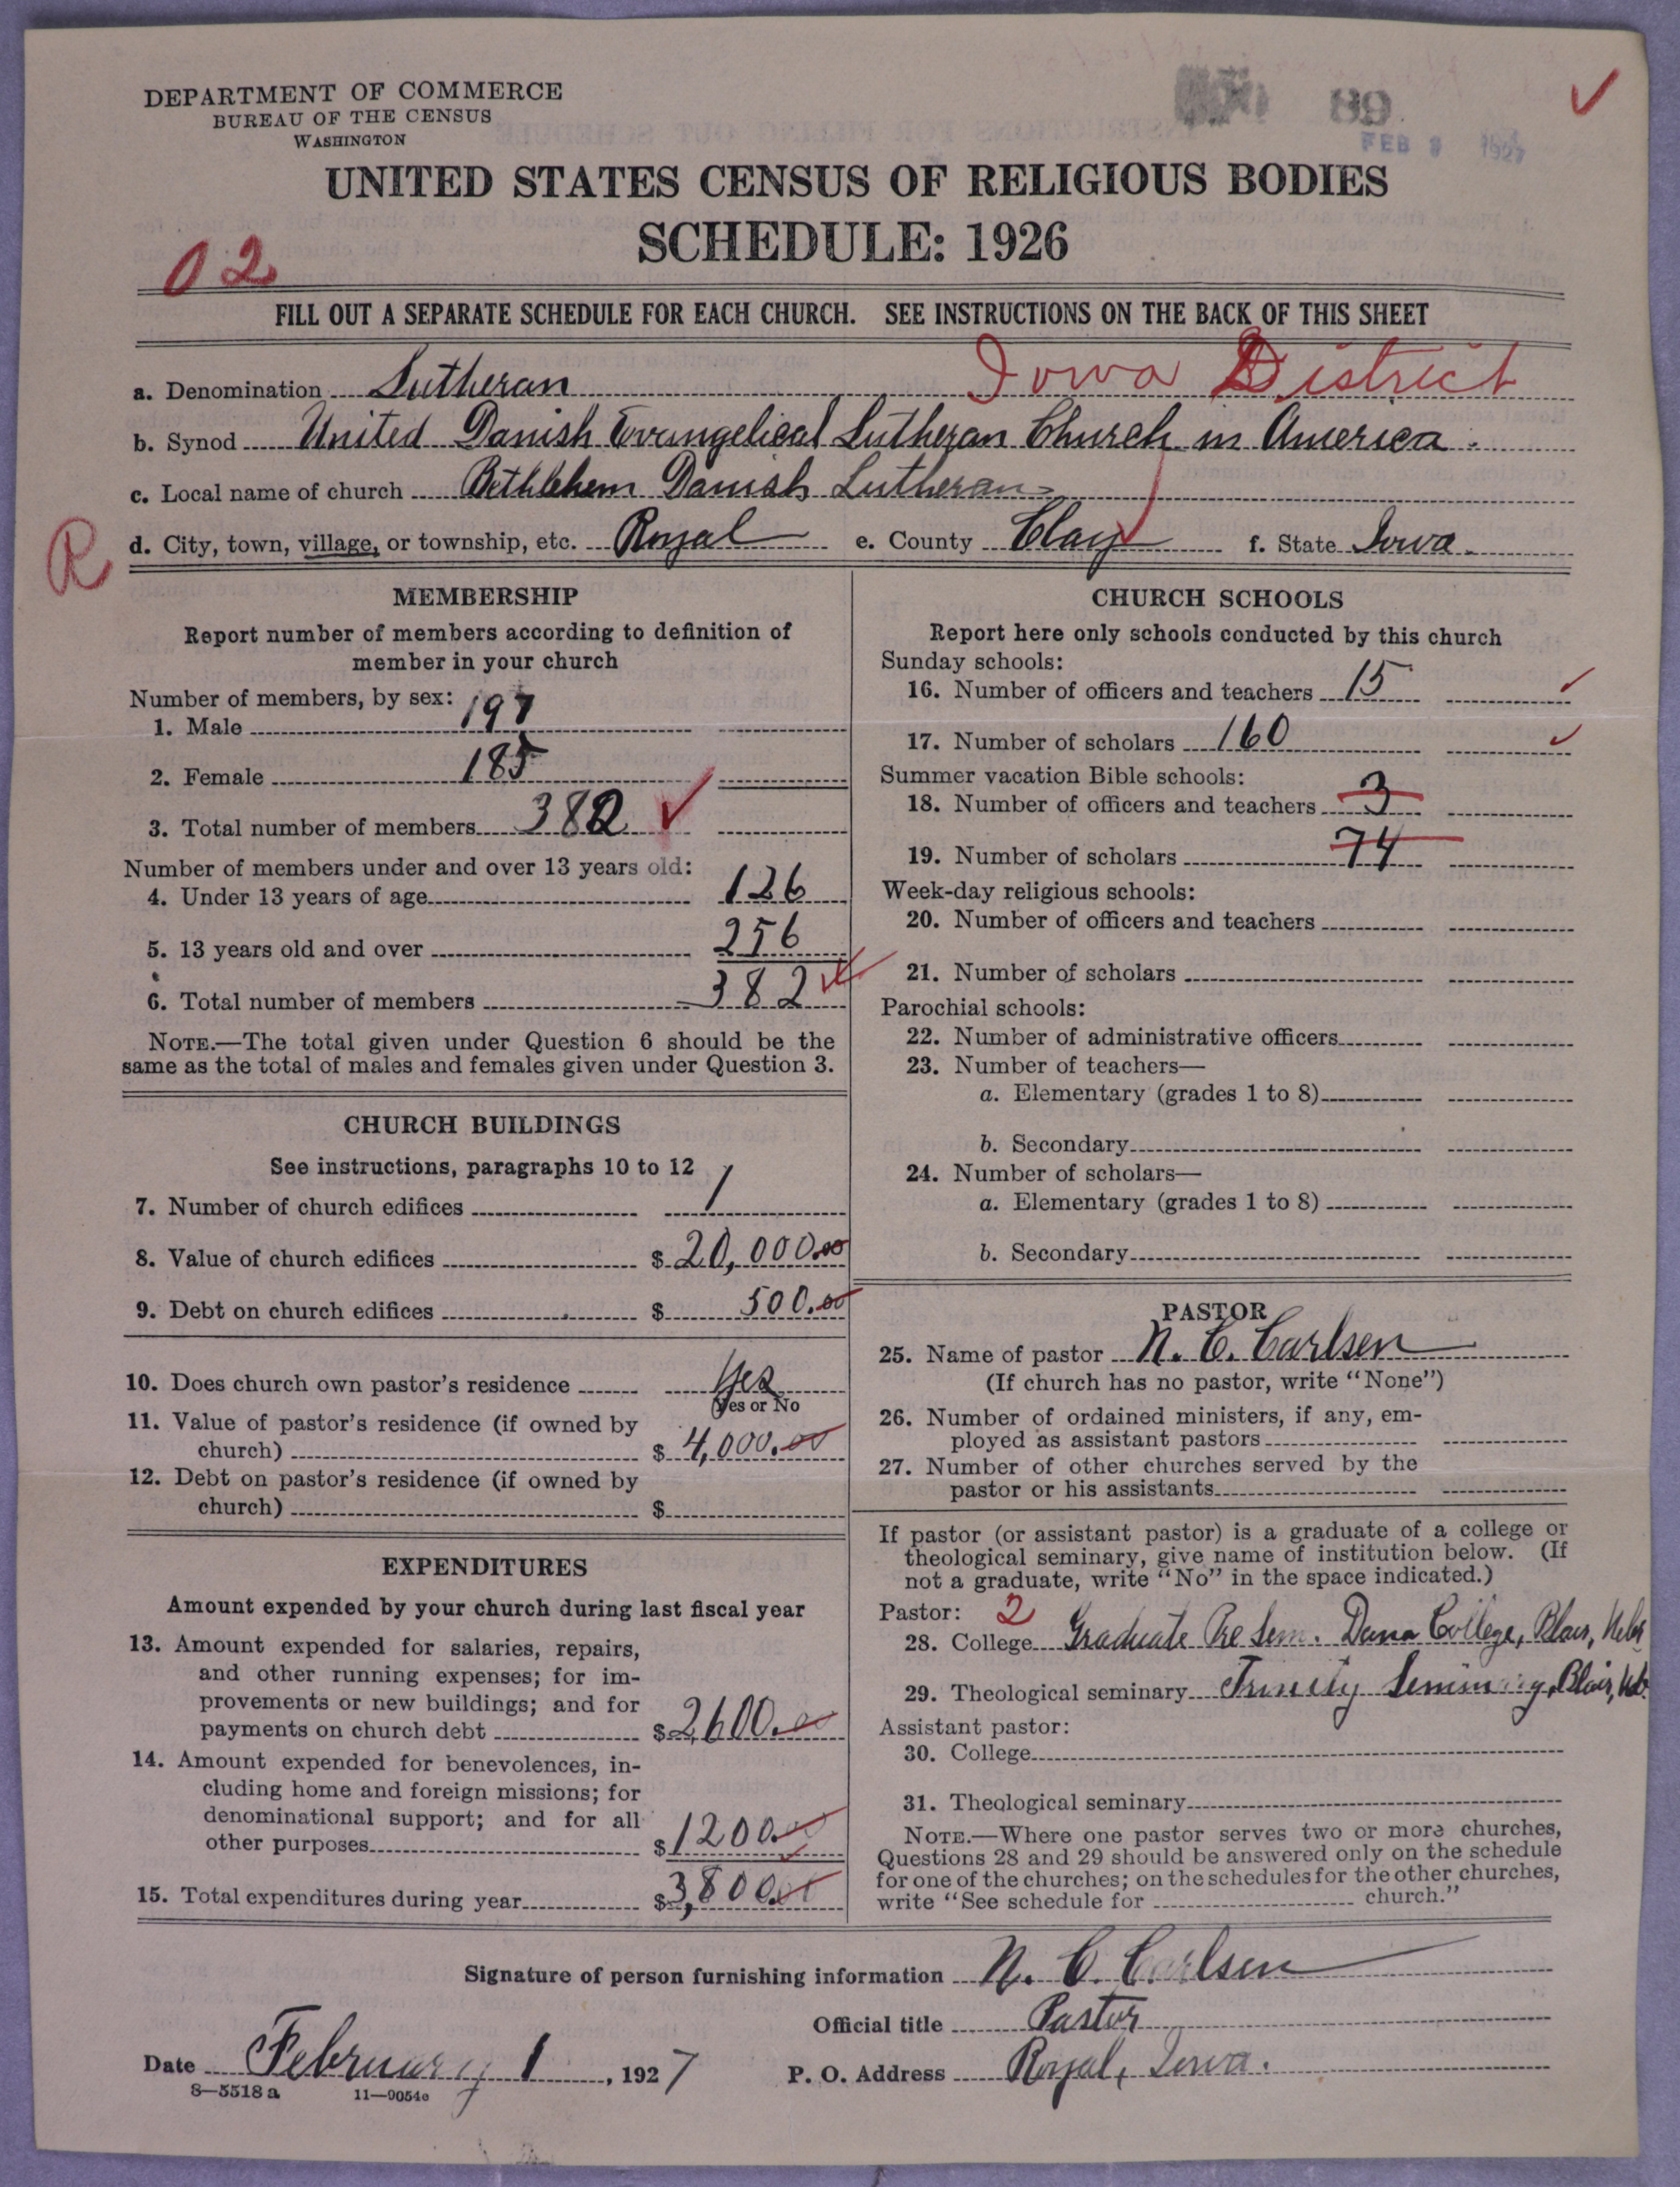 DEPARTMENT OF COMMERCE
BUREAU OF THE CENSUS
WASHINGTON
89
FEB 1927
UNITED STATES CENSUS OF RELIGIOUS BODIES
SCHEDULE: 1926
02
FILL OUT A SEPARATE SCHEDULE FOR EACH CHURCH. SEE INSTRUCTIONS ON THE BACK OF THIS SHEET
a. Denomination Lutheran Iowa District
b. Synod United Danish Evangelical Lutheran Church in America.
c. Local name of church Bethlehem Danish Lutheran
R
d. City, town, village, or township, etc. Royal e. County Clay f. State Iowa.
MEMBERSHIP
Report number of members according to definition of
member in your church
Number of members, by sex:
1. Male 197
2. Female 185
3. Total number of members 382
Number of members under and over 13 years old:
4. Under 13 years of age 126
5. 13 years old and over 256
6. Total number of members 382
NOTE.—The total given under Question 6 should be the
same as the total of males and females given under Question 3.
CHURCH BUILDINGS
See instructions, paragraphs 10 to 12
7. Number of church edifices 1
8. Value of church edifices $ 20,000.00
9. Debt on church edifices $ 500.00
10. Does church own pastor's residence Yes
Yes or No
11. Value of pastor's residence (if owned by
church) $ 4,000.00
12. Debt on pastor's residence (if owned by
church) $
EXPENDITURES
Amount expended by your church during last fiscal year
13. Amount expended for salaries, repairs,
and other running expenses; for im-
provements or new buildings; and for
payments on church debt $ 2600.00
14. Amount expended for benevolences, in-
cluding home and foreign missions; for
denominational support; and for all
other purposes $ 1200.00
15. Total expenditures during year $ 3,800.00
CHURCH SCHOOLS
Report here only schools conducted by this church
Sunday schools:
16. Number of officers and teachers 15
17. Number of scholars 160
Summer vacation Bible schools:
18. Number of officers and teachers 3
19. Number of scholars 74
Week-day religious schools:
20. Number of officers and teachers
21. Number of scholars
Parochial schools:
22. Number of administrative officers
23. Number of teachers—
a. Elementary (grades 1 to 8)
b. Secondary
24. Number of scholars—
a. Elementary (grades 1 to 8)
b. Secondary
PASTOR
25. Name of pastor N. C. Carlsen
(If church has no pastor, write "None")
26. Number of ordained ministers, if any, em-
ployed as assistant pastors
27. Number of other churches served by the
pastor or his assistants
If pastor (or assistant pastor) is a graduate of a college or
theological seminary, give name of institution below. (If
not a graduate, write "No" in the space indicated.)
Pastor: 2
28. College Graduate Pre Sem. Dana College, Blair, Nebr
29. Theological seminary Trinity Seminary, Blair, Neb.
Assistant pastor:
30. College
31. Theological seminary
NOTE.—Where one pastor serves two or more churches,
Questions 28 and 29 should be answered only on the schedule
for one of the churches; on the schedules for the other churches,
write "See schedule for church."
Signature of person furnishing information N. C. Carlsen
Official title Pastor
Date February 1, 1927 P. O. Address Royal, Iowa.
8—5518 a 11—9054e